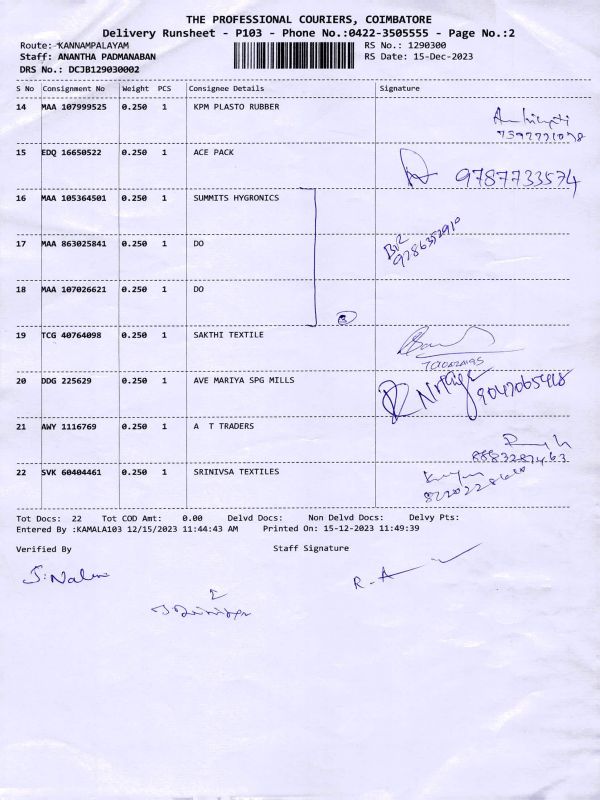 THE PROFESSIONAL COURIERS, COIMBATORE
Delivery Runsheet - P103 - Phone No.:0422-3505555 - Page No.:2
Route: KANNAMPALAYAM RS No.: 1290300
Staff: ANANTHA PADMANABAN RS Date: 15-Dec-2023
DRS No.: DCJB129030002
S No Consignment No Weight PCS Consignee Details Signature
14 MAA 107999525 0.250 1 KPM PLASTO RUBBER
15 EDQ 16650522 0.250 1 ACE PACK 9787733574
16 MAA 105364501 0.250 1 SUMMITS HYGRONICS
17 MAA 863025841 0.250 1 DO
18 MAA 107026621 0.250 1 DO
19 TCG 40764098 0.250 1 SAKTHI TEXTILE
20 DDG 225629 0.250 1 AVE MARIYA SPG MILLS
21 AWY 1116769 0.250 1 A T TRADERS
22 SVK 60404461 0.250 1 SRINIVSA TEXTILES
Tot Docs: 22 Tot COD Amt: 0.00 Delvd Docs: Non Delvd Docs: Delvy Pts:
Entered By :KAMALA103 12/15/2023 11:44:43 AM Printed On: 15-12-2023 11:49:39
Verified By Staff Signature